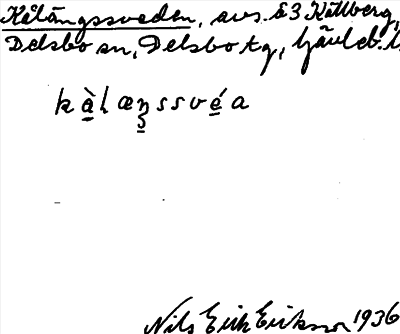 Kålängssveden, avs. å 3 Källberg,
Delsbo sn, Delsbo tg, Gävleb. l.
kàlæŋssvéa
Nils Erik Erikson 1936